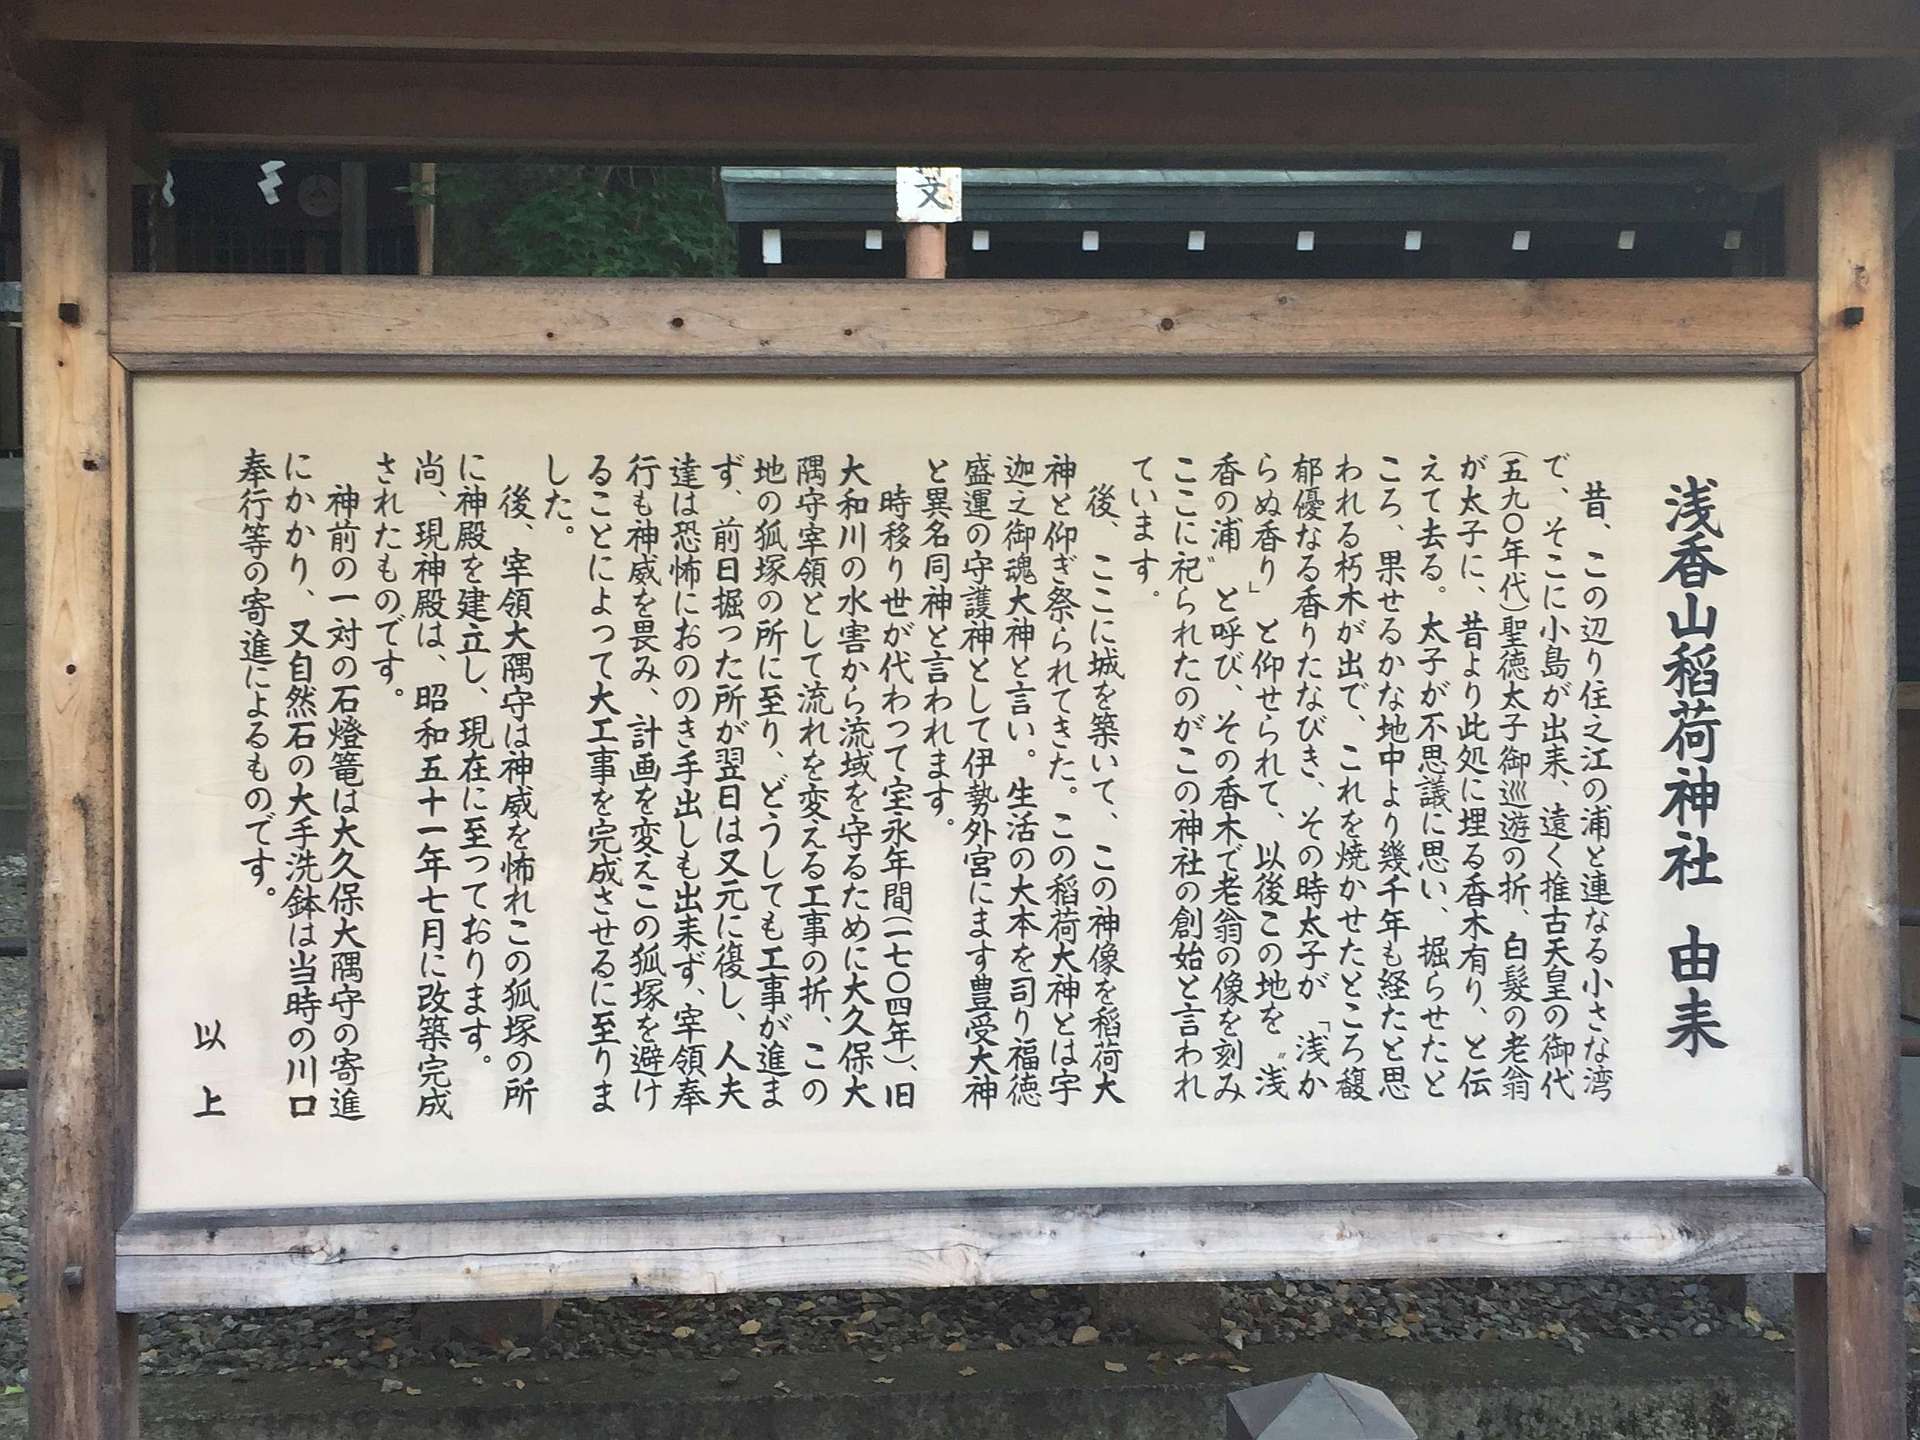 文
浅香山稲荷神社 由来
昔、この辺り住之江の浦と連なる小さな湾
で、そこに小島が出来、遠く推古天皇の御代
(五九〇年代)聖徳太子御巡遊の折、白髪の老翁
が太子に、昔より此処に埋る香木有り、と伝
えて去る。太子が不思議に思い、掘らせたと
ころ、果せるかな地中より幾千年も経たと思
われる朽木が出で、これを焼かせたところ馥
郁優なる香りたなびき、その時太子が「浅か
らぬ香り」と仰せられて、以後この地を〝浅
香の浦〟と呼び、その香木で老翁の像を刻み
ここに祀られたのがこの神社の創始と言われ
ています。
後、ここに城を築いて、この神像を稲荷大
神と仰ぎ祭られてきた。この稲荷大神とは宇
迦之御魂大神と言い。生活の大本を司り福徳
盛運の守護神として伊勢外宮にます豊受大神
と異名同神と言われます。
時移り世が代わって宝永年間(一七〇四年)、旧
大和川の水害から流域を守るために大久保大
隅守宰領として流れを変える工事の折、この
地の狐塚の所に至り、どうしても工事が進ま
ず、前日掘った所が翌日は又元に復し、人夫
達は恐怖におののき手出しも出来ず、宰領奉
行も神威を畏み、計画を変えこの狐塚を避け
ることによって大工事を完成させるに至りま
した。
後、宰領大隅守は神威を怖れこの狐塚の所
に神殿を建立し、現在に至っております。
尚、現神殿は、昭和五十一年七月に改築完成
されたものです。
神前の一対の石燈篭は大久保大隅守の寄進
にかかり、又自然石の大手洗鉢は当時の川口
奉行等の寄進によるものです。
以上